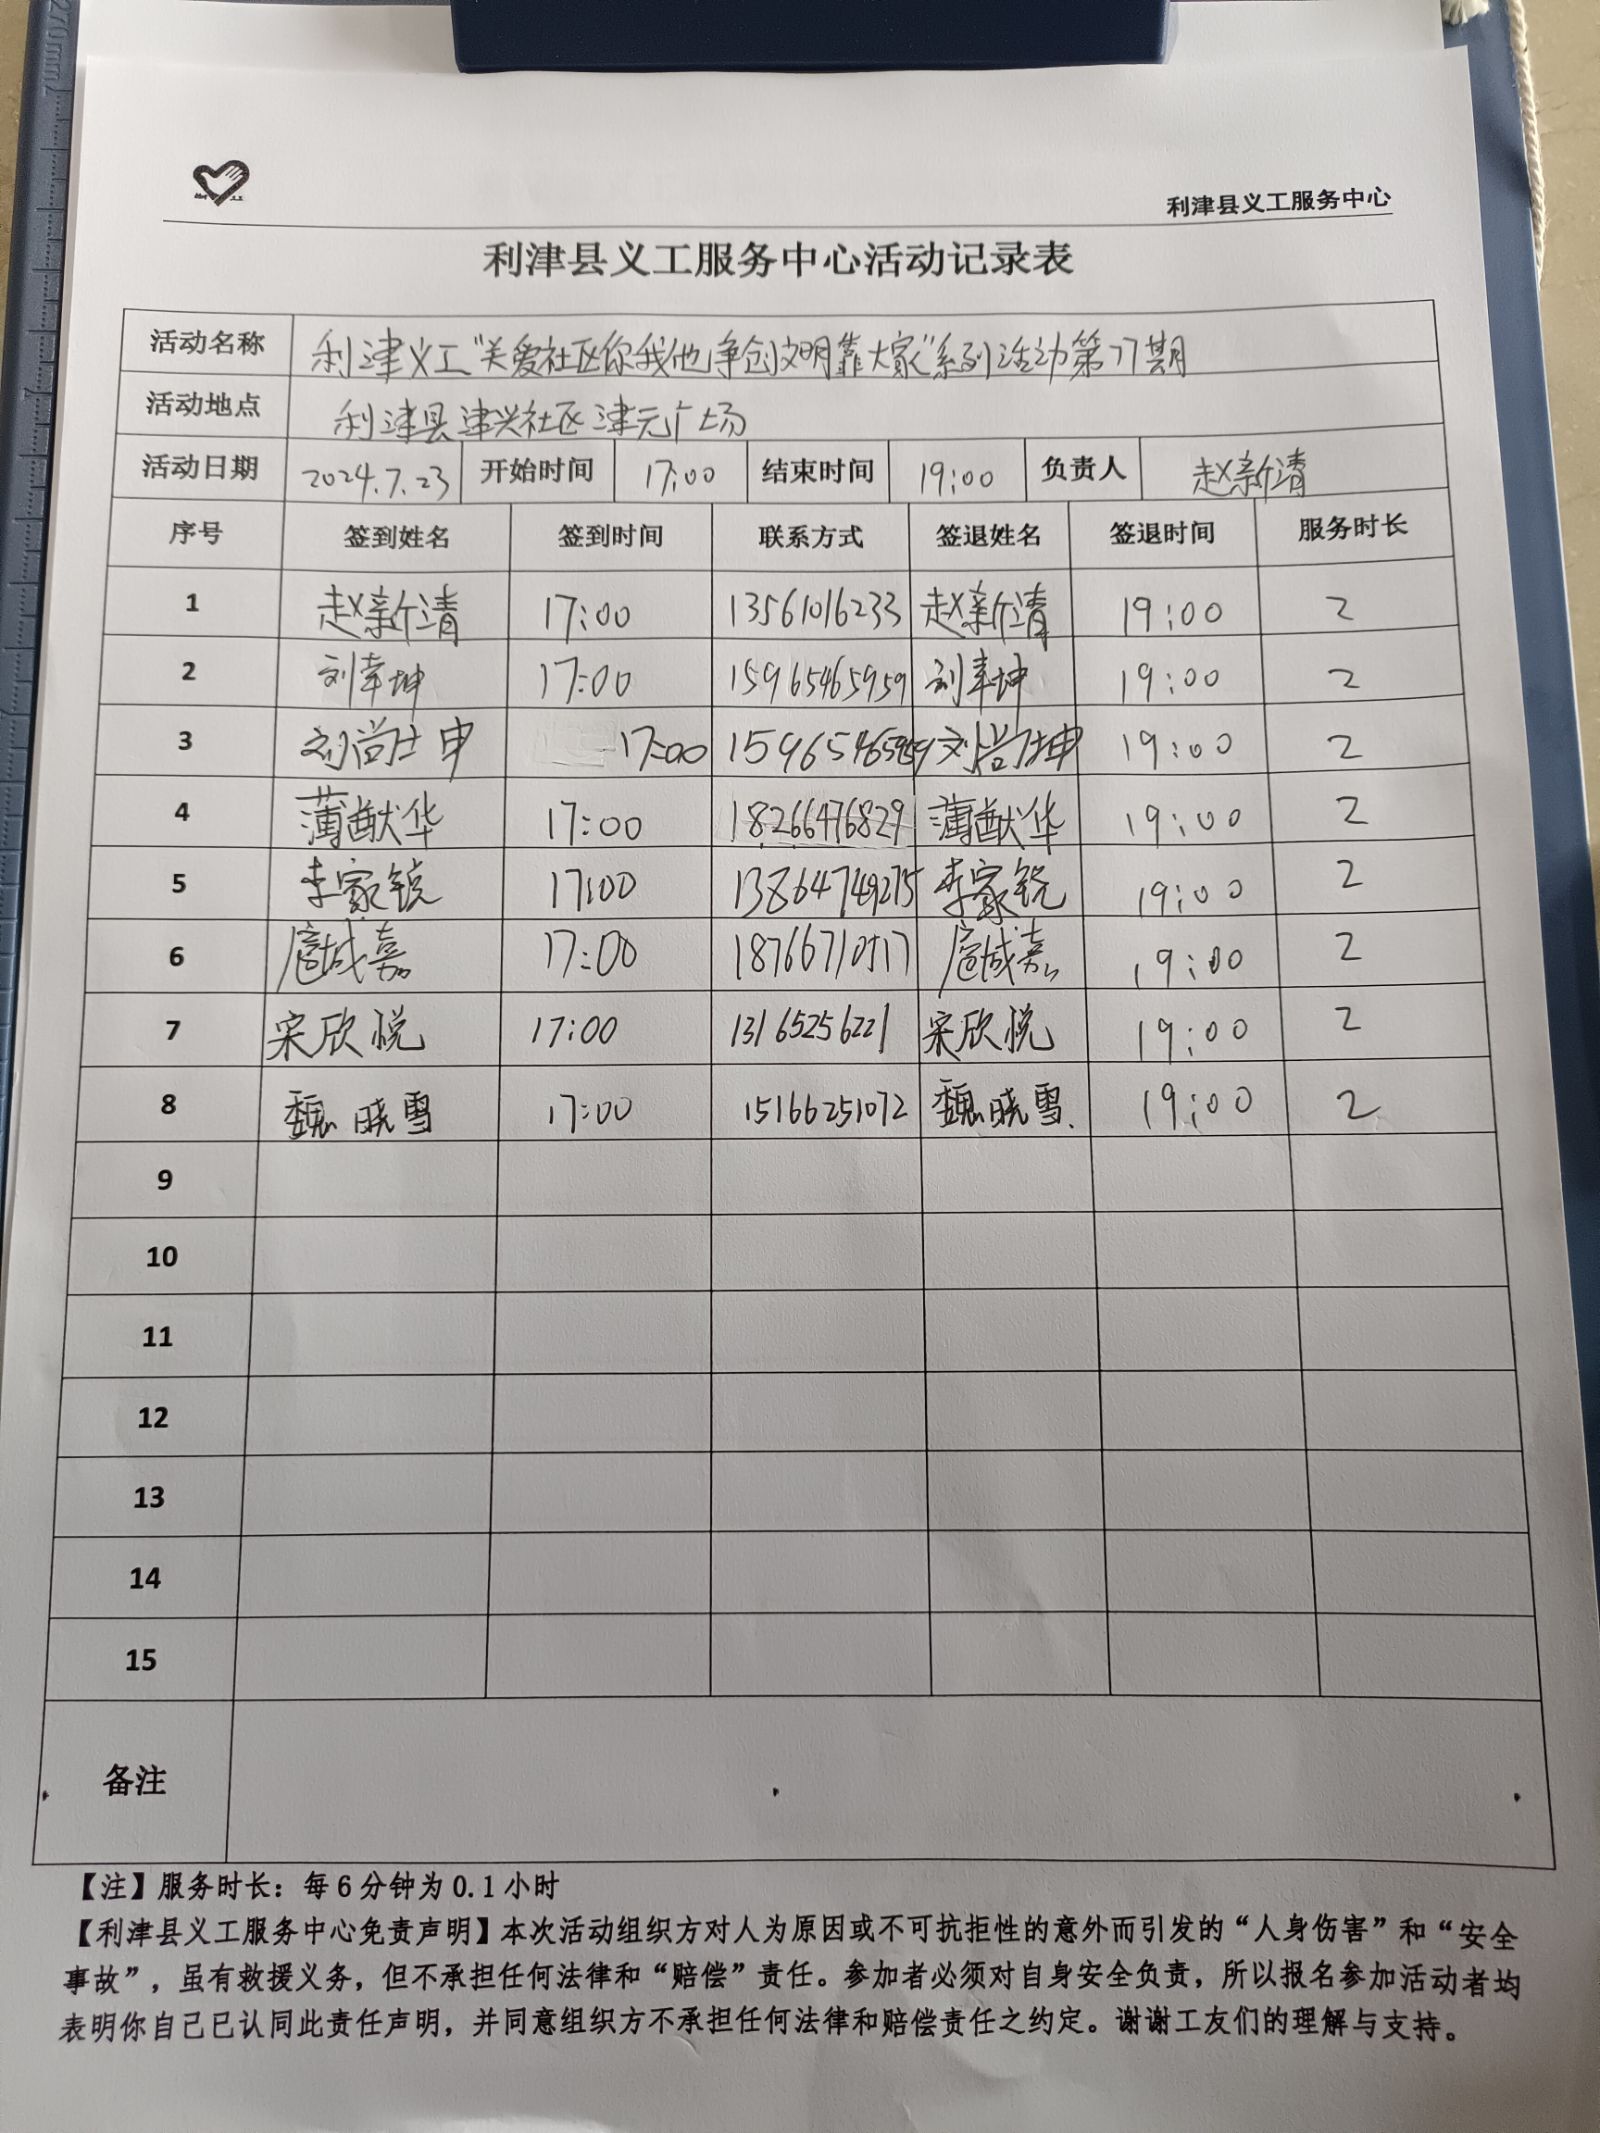 利津县义工服务中心
利津县义工服务中心活动记录表
活动名称 利津义工“关爱社区你我他争创文明靠大家”系列活动第77期
活动地点 利津县津兴社区津元广场
活动日期 2024.7.23 开始时间 17:00 结束时间 19:00 负责人 赵新清
序号 签到姓名 签到时间 联系方式 签退姓名 签退时间 服务时长
1 赵新清 17:00 13561016233 赵新清 19:00 2
2 刘幸坤 17:00 15965465959 刘幸坤 19:00 2
3 刘尚坤 17:00 15965465959 刘尚坤 19:00 2
4 薄猷华 17:00 18266476829 薄猷华 19:00 2
5 李家锐 17:00 13864749275 李家锐 19:00 2
6 扈城嘉 17:00 18766710517 扈城嘉 19:00 2
7 宋欣悦 17:00 13165256221 宋欣悦 19:00 2
8 魏晓雪 17:00 15166251072 魏晓雪 19:00 2
9
10
11
12
13
14
15
备注
【注】服务时长：每6分钟为0.1小时
【利津县义工服务中心免责声明】本次活动组织方对人为原因或不可抗拒性的意外而引发的“人身伤害”和“安全
事故”，虽有救援义务，但不承担任何法律和“赔偿”责任。参加者必须对自身安全负责，所以报名参加活动者均
表明你自己已认同此责任声明，并同意组织方不承担任何法律和赔偿责任之约定。谢谢工友们的理解与支持。